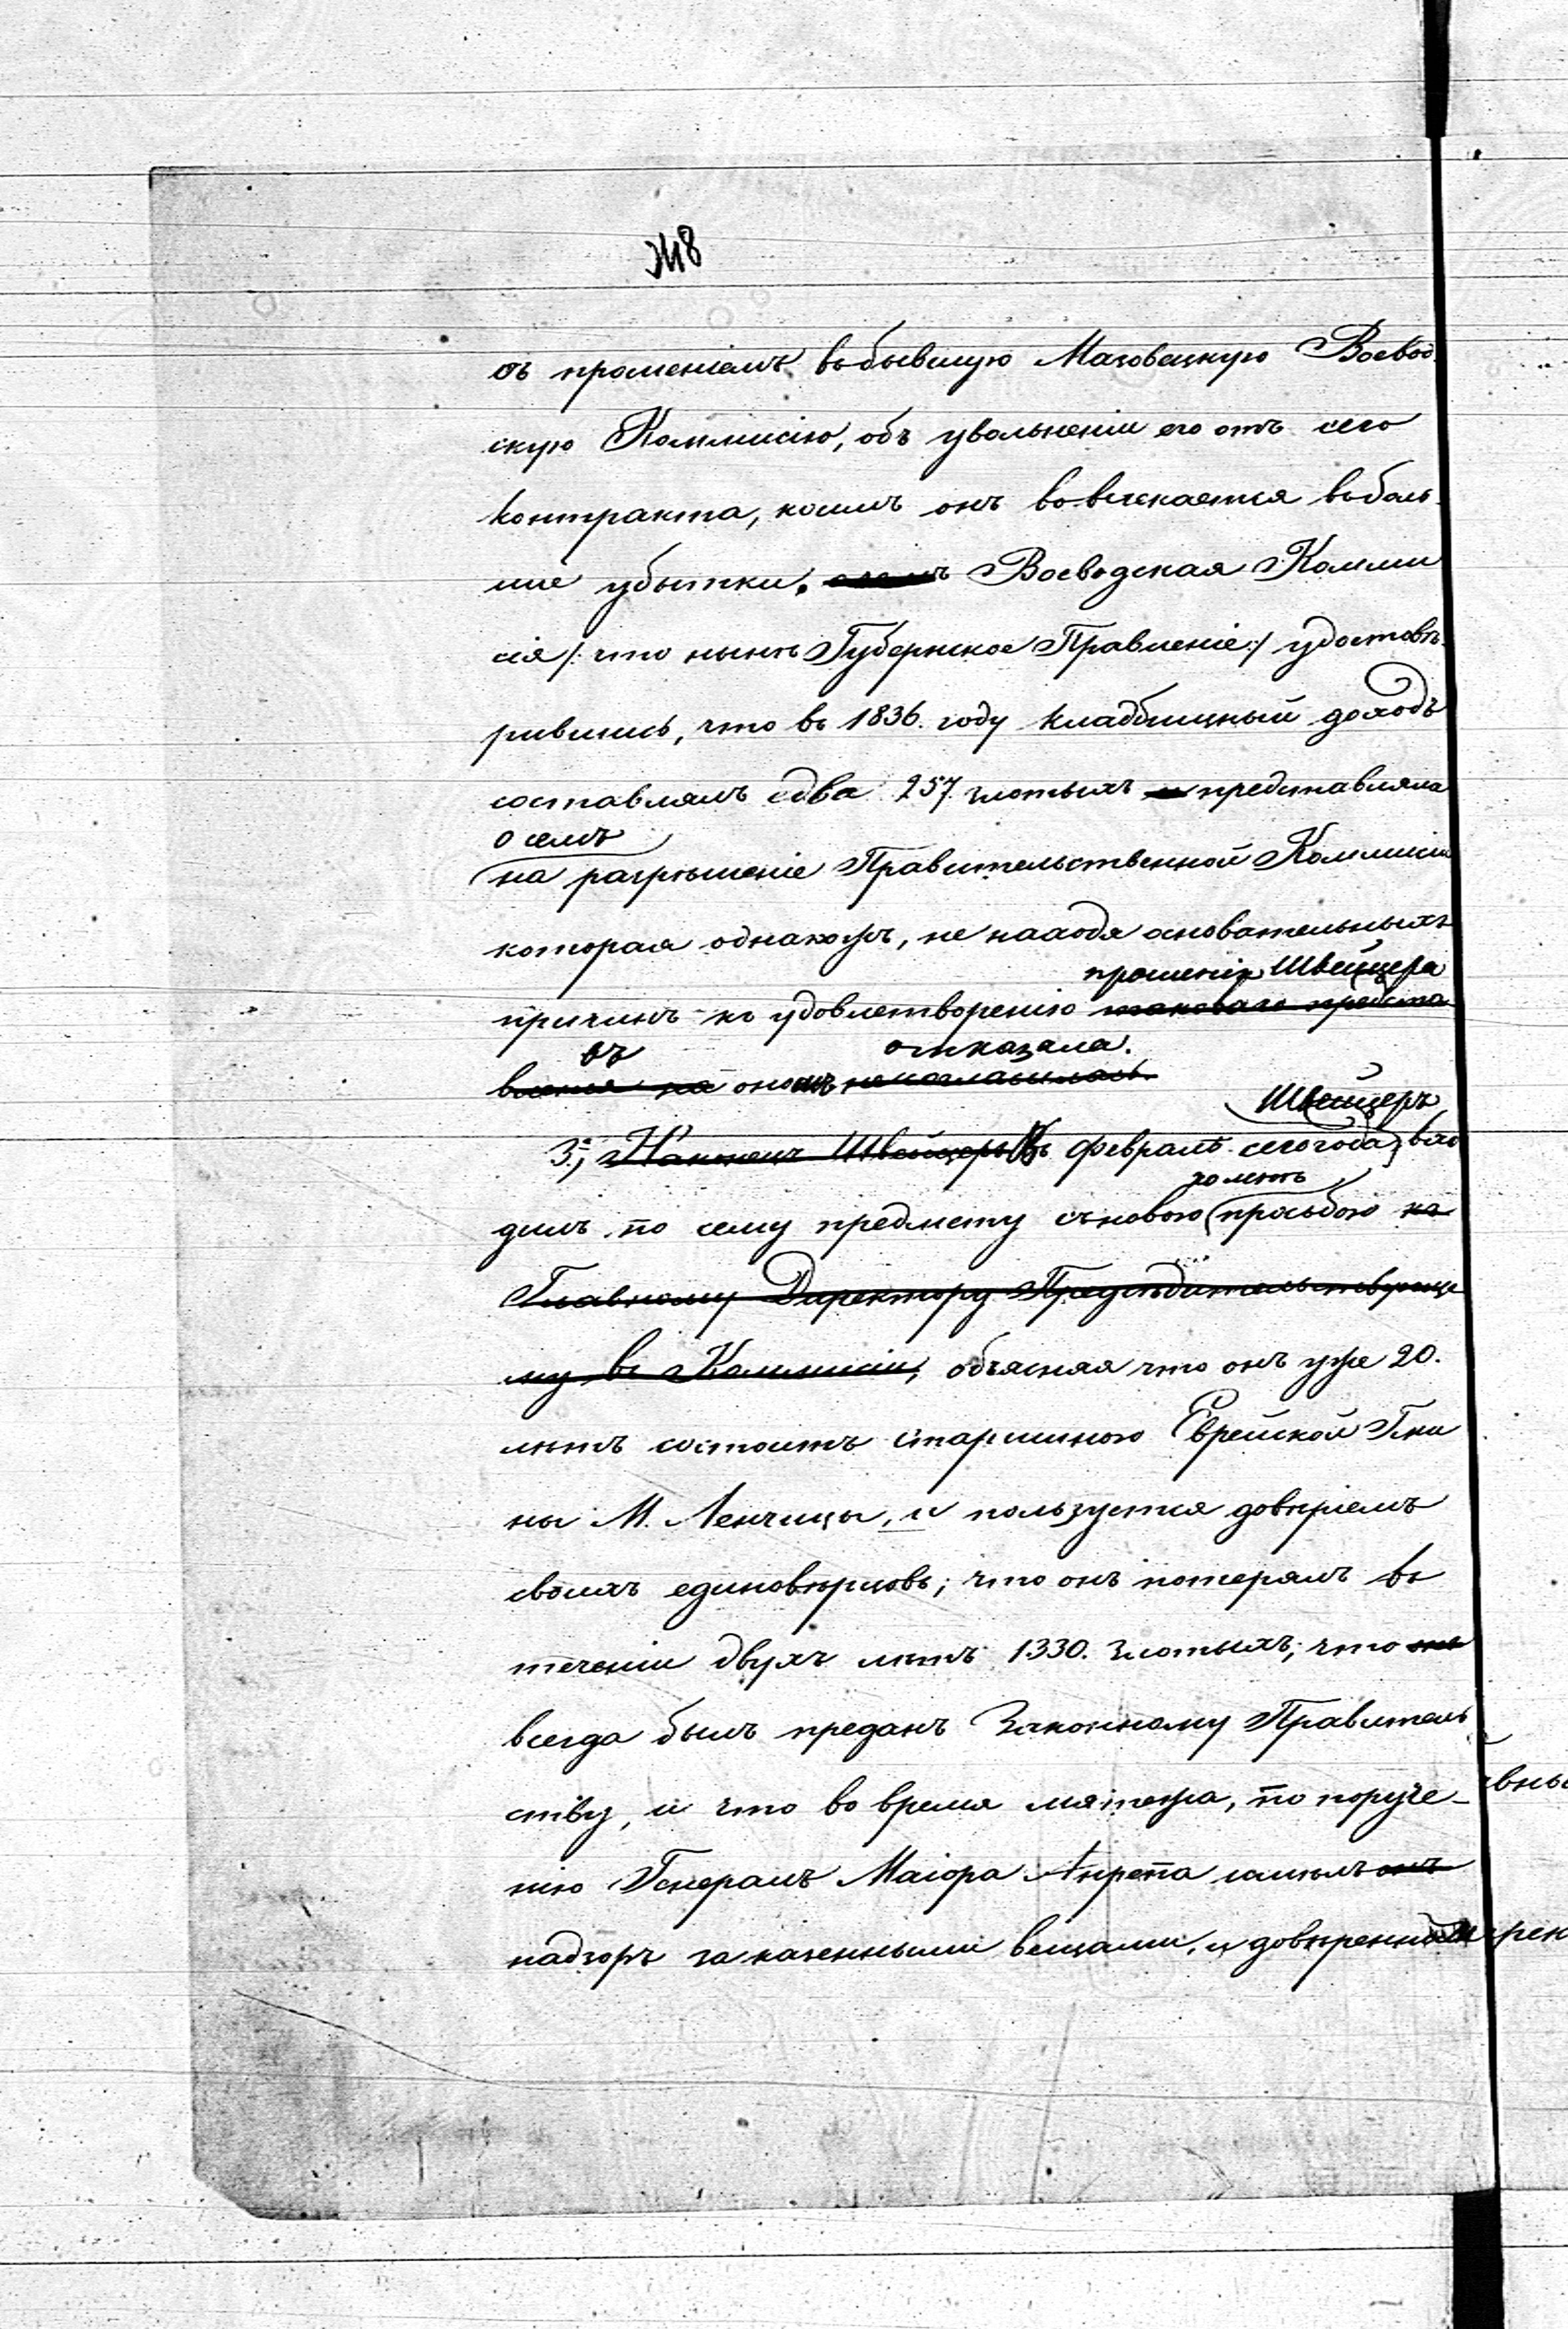 съ прошеніемъ въ бывшую Мазовецкую Воевод
скую Коммисію, объ увольненіи его отъ сего
контракта, коимъ онъ вовлекается въ боль
шіе убытки. Воеводская Комми
сія /: что нынѣ Губернское Правленіе :/ удостовѣ
рившись, что въ 1836. году кладбищный доходъ
составлялъ едва 257. злотыхъ представляла
о семъ
на разрѣшеніе Правительственной Коммисіи
которая однакожъ, не находя основательныхъ
прошенія Швейцера
причинъ къ удовлетворенію таковаго предста
въ отказала.
вленія на ономъ не согласилась.
Швейцеръ
3., Наконецъ Швейцеръ Въ Февралѣ сего года, вхо
дилъ по сему предмету съ новою просьбою къ
Главному Директору Предсѣдательствующе
му въ Коммисіи, объясняя что онъ уже 20.
лѣтъ состоитъ старшиною Еврейской Гми
ны М. Ленчицы, и пользуется довѣріемъ
своихъ единовѣрцовъ; что онъ потерялъ въ
теченіи двухъ лѣтъ 1330. злотыхъ; что онъ
всегда былъ преданъ Законному Правитель
ству, и что во время мятежа, по поруче-
нію Генералъ Маіора Анрепа имѣлъ онъ
надзоръ за казенными вещами, и довѣренны